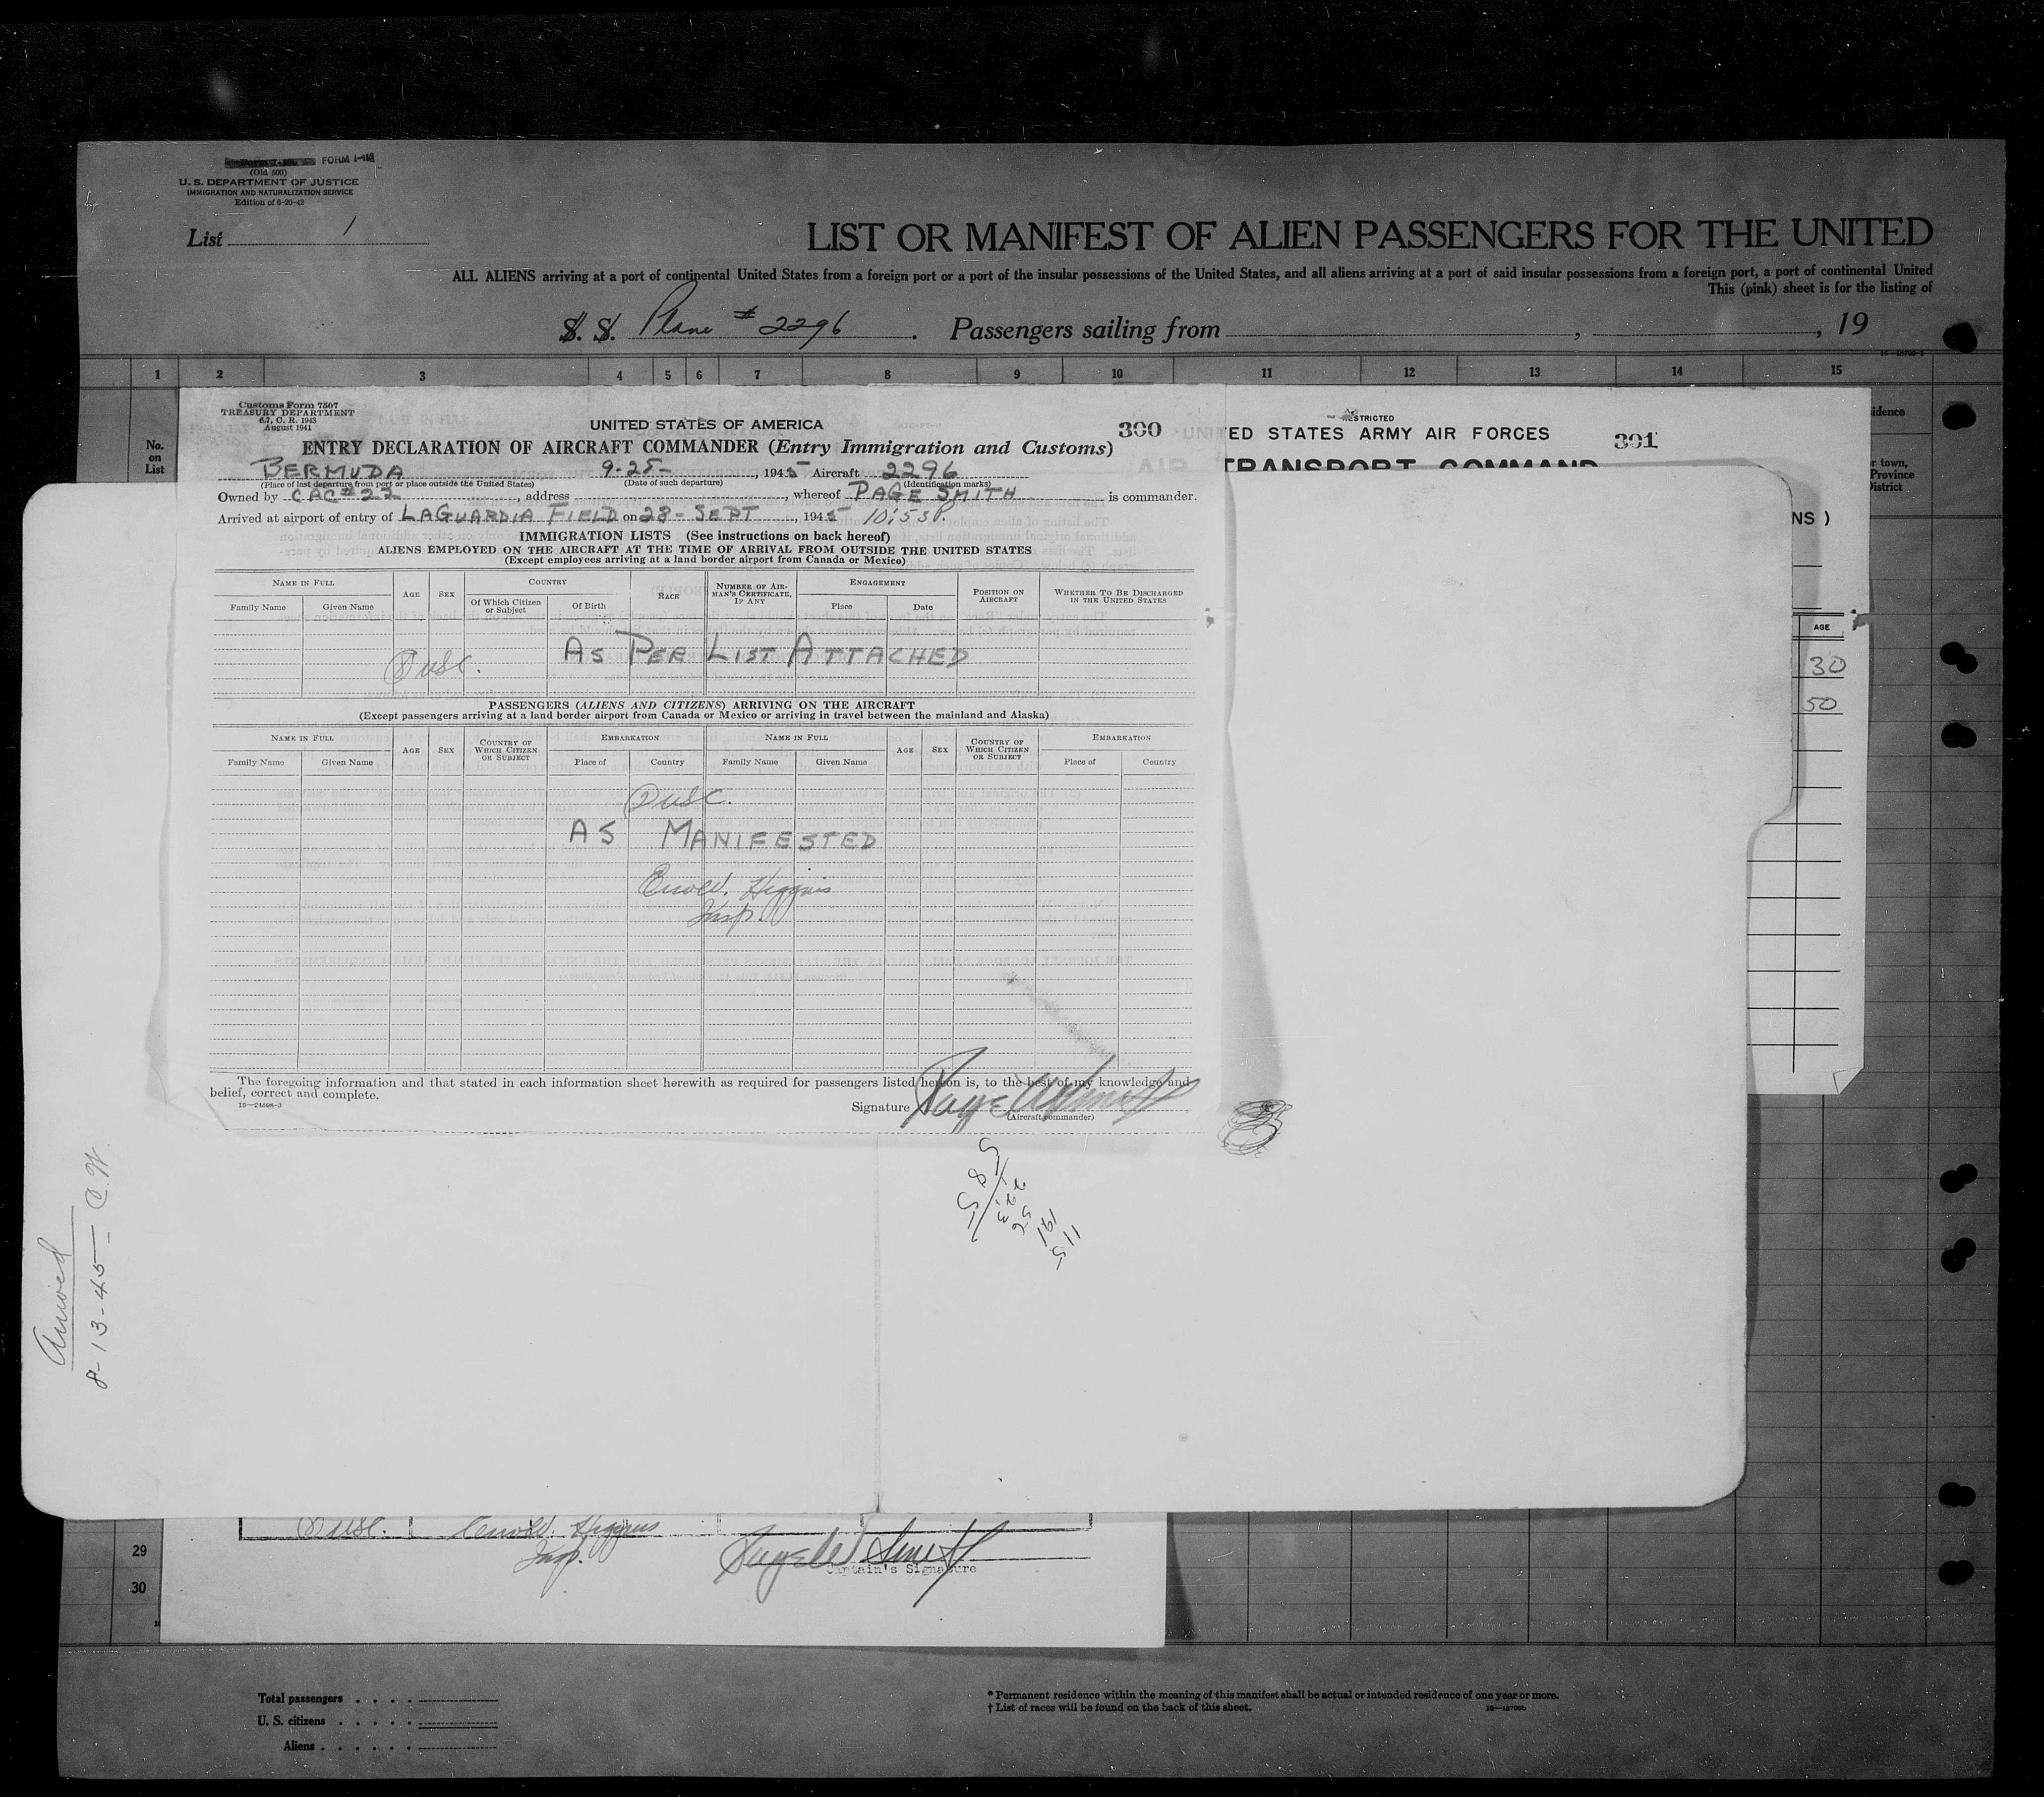 FORM I-415
(Old 500)
U. S. DEPARTMENT OF JUSTICE
IMMIGRATION AND NATURALIZATION SERVICE
Edition of 6-20-42
List 1
LIST OR MANIFEST OF ALIEN PASSENGERS FOR THE UNITED
ALL ALIENS arriving at a port of continental United States from a foreign port or a port of the insular possessions of the United States, and all aliens arriving at a port of said insular possessions from a foreign port, a port of continental United
This (pink) sheet is for the listing of
S. S. Plane # 2296 . Passengers sailing from , , 19
1 2 3 4 5 6 7 8 9 10 11 12 13 14 15
No. on List
Customs Form 7507
TREASURY DEPARTMENT
6.7, C. R. 1943
August 1941
UNITED STATES OF AMERICA
300
ENTRY DECLARATION OF AIRCRAFT COMMANDER (Entry Immigration and Customs)
BERMUDA 9-25- , 1945 Aircraft 2296
(Place of last departure from port or place outside the United States) (Date of such departure) (Identification marks)
Owned by CAC#22 , address , whereof PAGE SMITH is commander.
Arrived at airport of entry of LAGUARDIA FIELD on 28-SEPT , 1945 10:53P.
IMMIGRATION LISTS (See instructions on back hereof)
ALIENS EMPLOYED ON THE AIRCRAFT AT THE TIME OF ARRIVAL FROM OUTSIDE THE UNITED STATES
(Except employees arriving at a land border airport from Canada or Mexico)
NAME IN FULL AGE SEX COUNTRY RACE NUMBER OF AIRMAN'S CERTIFICATE, IF ANY ENGAGEMENT POSITION ON AIRCRAFT WHETHER TO BE DISCHARGED IN THE UNITED STATES
Family Name Given Name Of Which Citizen or Subject Of Birth Place Date
AS PER LIST ATTACHED
USC.
PASSENGERS (ALIENS AND CITIZENS) ARRIVING ON THE AIRCRAFT
(Except passengers arriving at a land border airport from Canada or Mexico or arriving in travel between the mainland and Alaska)
NAME IN FULL AGE SEX COUNTRY OF WHICH CITIZEN OR SUBJECT EMBARKATION NAME IN FULL AGE SEX COUNTRY OF WHICH CITIZEN OR SUBJECT EMBARKATION
Family Name Given Name Place of Country Family Name Given Name Place of Country
USC.
AS MANIFESTED
Higgins
Insp.
The foregoing information and that stated in each information sheet herewith as required for passengers listed hereon is, to the best of my knowledge and
belief, correct and complete.
16—24598-3
Signature Page W Smith
(Aircraft commander)
RESTRICTED
ED STATES ARMY AIR FORCES
301
TRANSPORT COMMAND
idence
r town,
Province
District
NS )
AGE
30
50
8-13-45 C.W.
USC. Higgins
Insp.
Page W Smith
Captain's Signature
29
30
Total passengers . . . .
U. S. citizens . . . . .
Aliens . . . . . .
* Permanent residence within the meaning of this manifest shall be actual or intended residence of one year or more.
† List of races will be found on the back of this sheet.